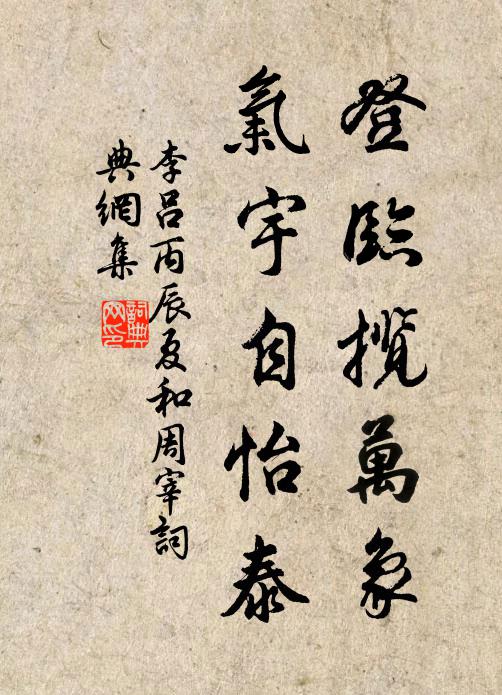 登臨攬萬象
氣宇自怡泰
李呂丙辰夏和周宰詞
典網集
詞典
网印